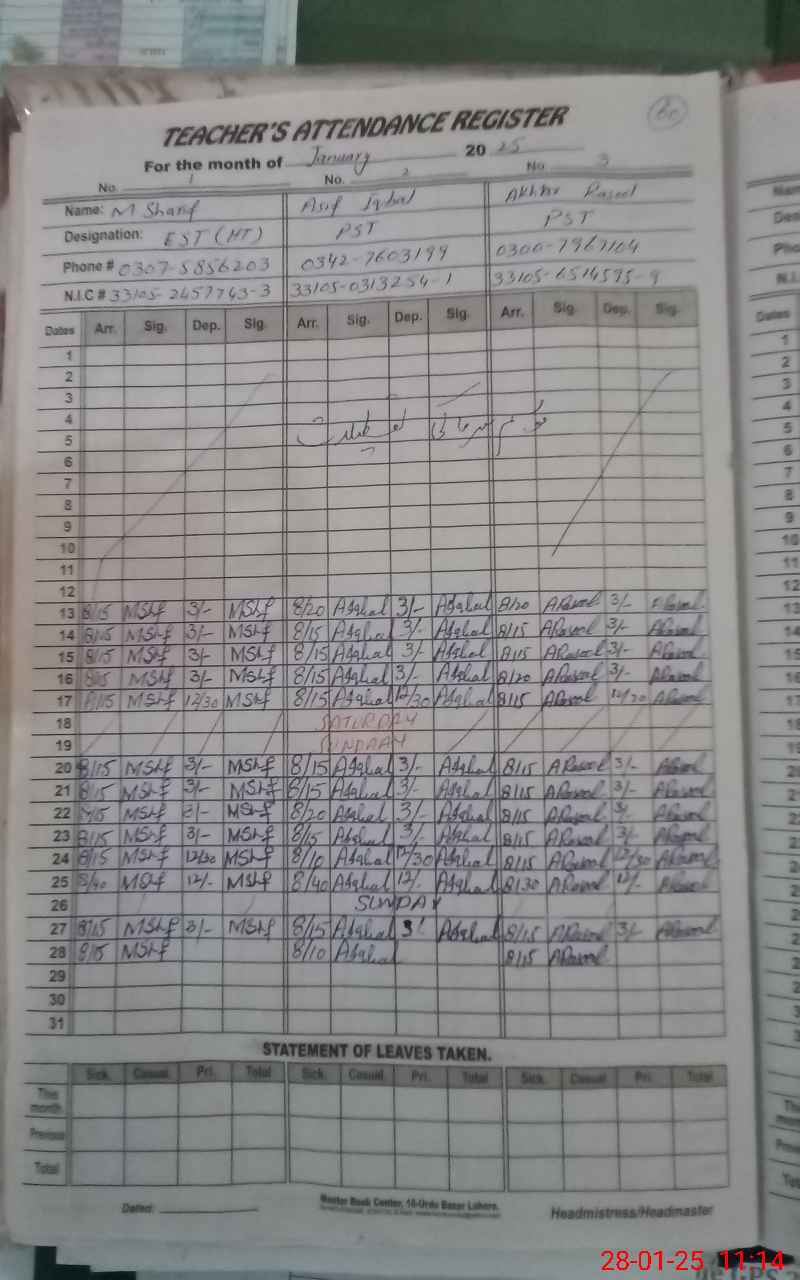 60
TEACHER'S ATTENDANCE REGISTER
For the month of January 2025
No. 1 No. 2 No 3
Name: M Sharif Asif Iqbal Akhtar Rasool
Designation: EST (HT) PST PST
Phone # 0307-5856203 0342-7603199 0300-7967104
N.I.C # 33105-2457743-3 33105-0313254-1 33105-6514595-9
Dates Arr. Sig. Dep. Sig. Arr. Sig. Dep. Sig. Arr. Sig. Dep. Sig.
1
2
3
4
5
6
7
8
9
10
11
12
13 8/15 MShf 3/- MShf 8/20 AIqbal 3/- AIqbal 8/20 ARasool 3/- ARasool
14 8/15 MShf 3/- MShf 8/15 AIqbal 3/- AIqbal 8/15 ARasool 3/- ARasool
15 8/15 MShf 3/- MShf 8/15 AIqbal 3/- AIqbal 8/15 ARasool 3/- ARasool
16 8/15 MShf 3/- MShf 8/15 AIqbal 3/- AIqbal 8/20 ARasool 3/- ARasool
17 8/15 MShf 12/30 MShf 8/15 AIqbal 12/30 AIqbal 8/15 ARasool 12/30 ARasool
18 SATURDAY
19 SUNDAAY
20 8/15 MShf 3/- MShf 8/15 AIqbal 3/- AIqbal 8/15 ARasool 3/- ARasool
21 8/15 MShf 3/- MShf 8/15 AIqbal 3/- AIqbal 8/15 ARasool 3/- ARasool
22 8/15 MShf 3/- MShf 8/20 AIqbal 3/- AIqbal 8/15 ARasool 3/- ARasool
23 8/15 MShf 3/- MShf 8/15 AIqbal 3/- AIqbal 8/15 ARasool 3/- ARasool
24 8/15 MShf 12/30 MShf 8/10 AIqbal 12/30 AIqbal 8/15 ARasool 12/30 ARasool
25 8/40 MShf 12/- MShf 8/40 AIqbal 12/- AIqbal 8/30 ARasool 12/- ARasool
26 SUNDAY
27 8/15 MShf 3/- MShf 8/15 AIqbal 3/- AIqbal 8/15 ARasool 3/- ARasool
28 8/15 MShf 8/10 AIqbal 8/15 ARasool
29
30
31
STATEMENT OF LEAVES TAKEN.
Sick. Casual. Pri. Total Sick. Casual. Pri. Total Sick. Casual. Pri. Total
This month
Previous
Total
Dated: Master Book Center, 16-Urdu Bazar Lahore. Headmistress/Headmaster
28-01-25 11:14